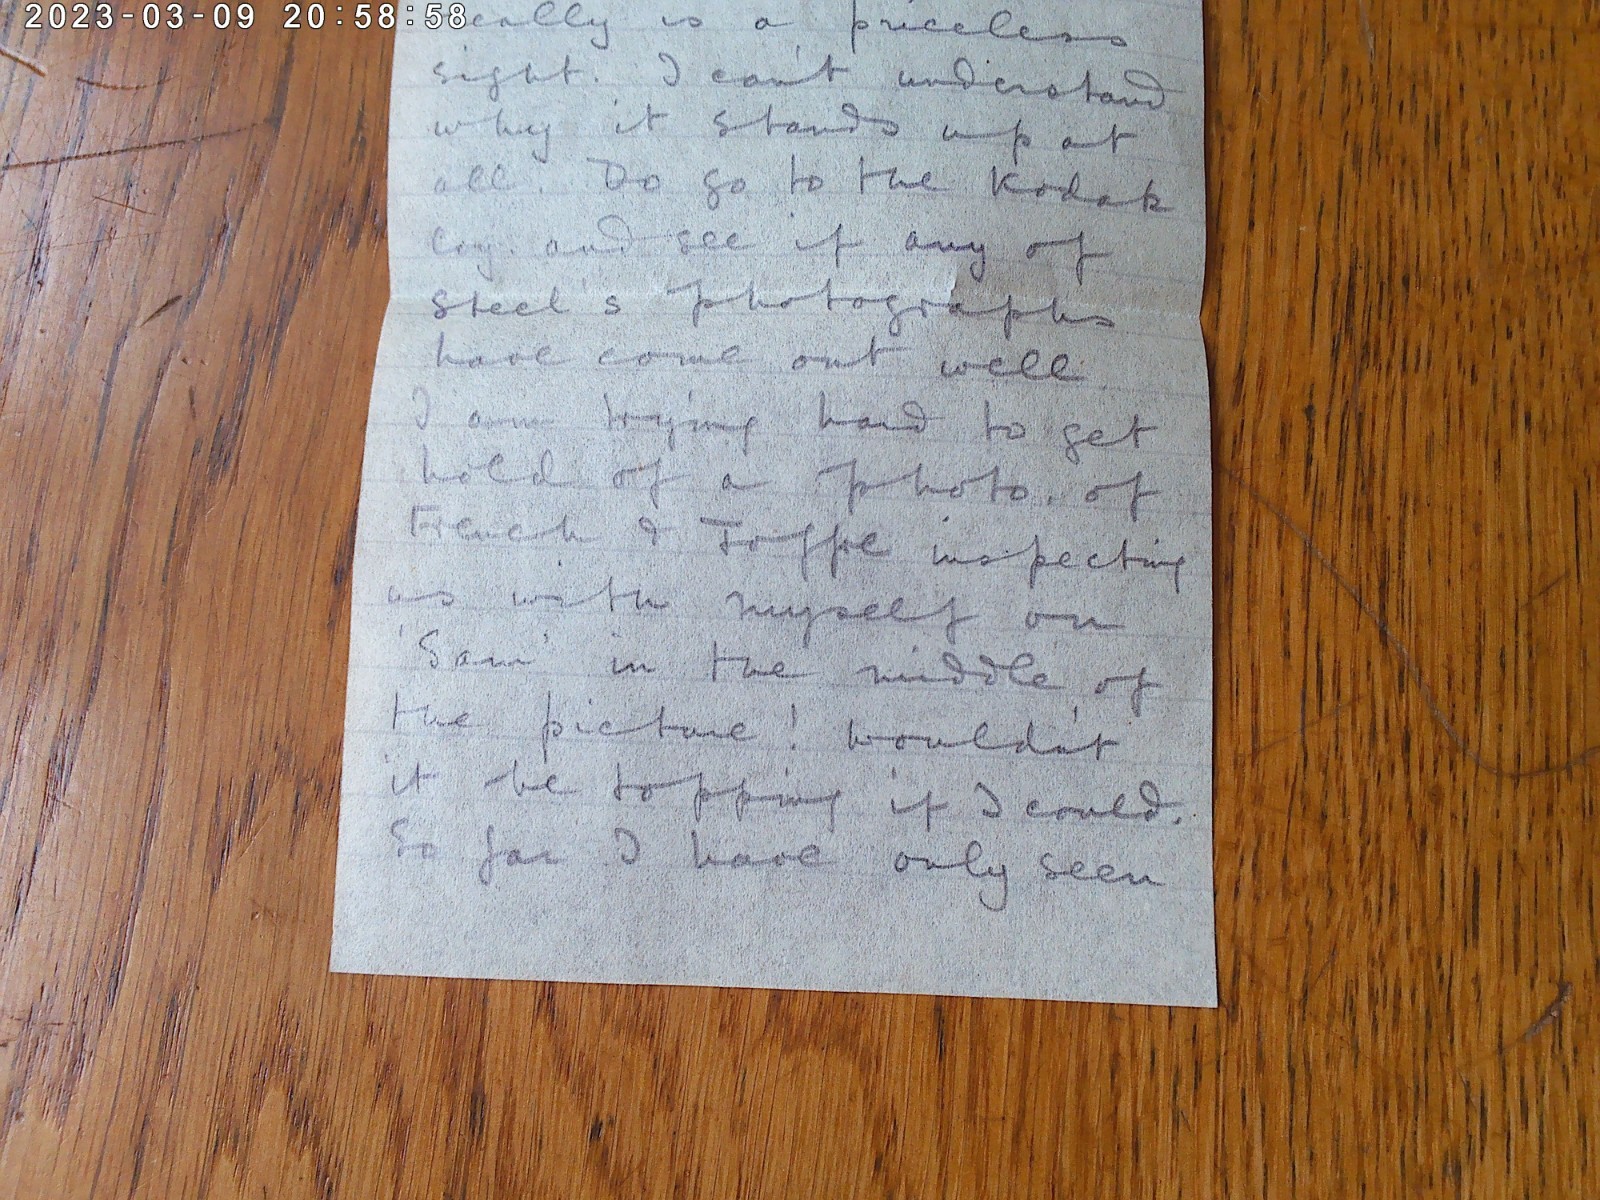 2023-03-09 20:58:58
really is a priceless
sight. I can't understand
why it stands up at
all. Do go to the Kodak
coy. and see if any of
Steel's photographs
have come out well.
I am trying hard to get
hold of a photo. of
French & Joffre inspecting
us with myself on
'Sam' in the middle of
the picture! Wouldn't
it be topping if I could.
So far I have only seen